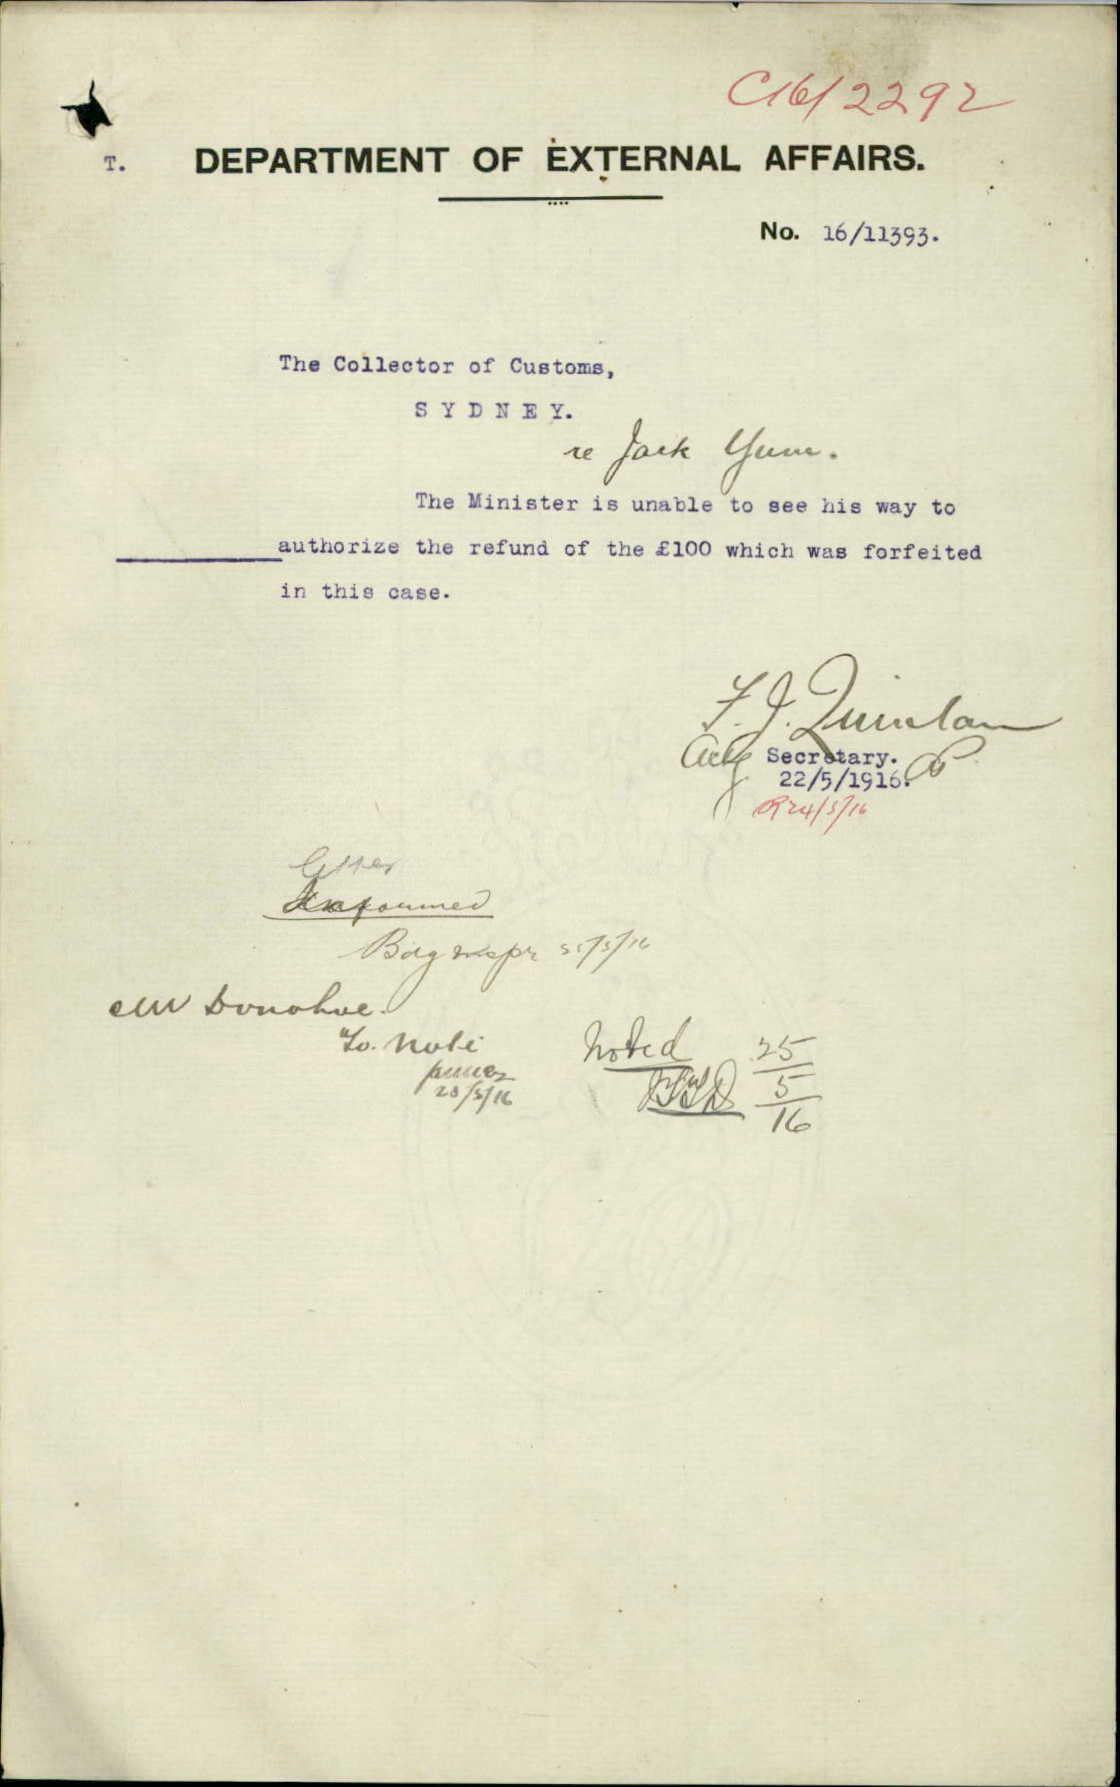 C16/2292
T. DEPARTMENT OF EXTERNAL AFFAIRS.
No. 16/11393.
The Collector of Customs,
SYDNEY.
re Jack Yum.
The Minister is unable to see his way to
authorize the refund of the £100 which was forfeited
in this case.
F. J. Quinlan
Actg Secretary.
22/5/1916.
R 24/5/16
Letter
Informed
25/5/16
Mr Donohoe.
To note
25/5/16
Noted 25
5
16